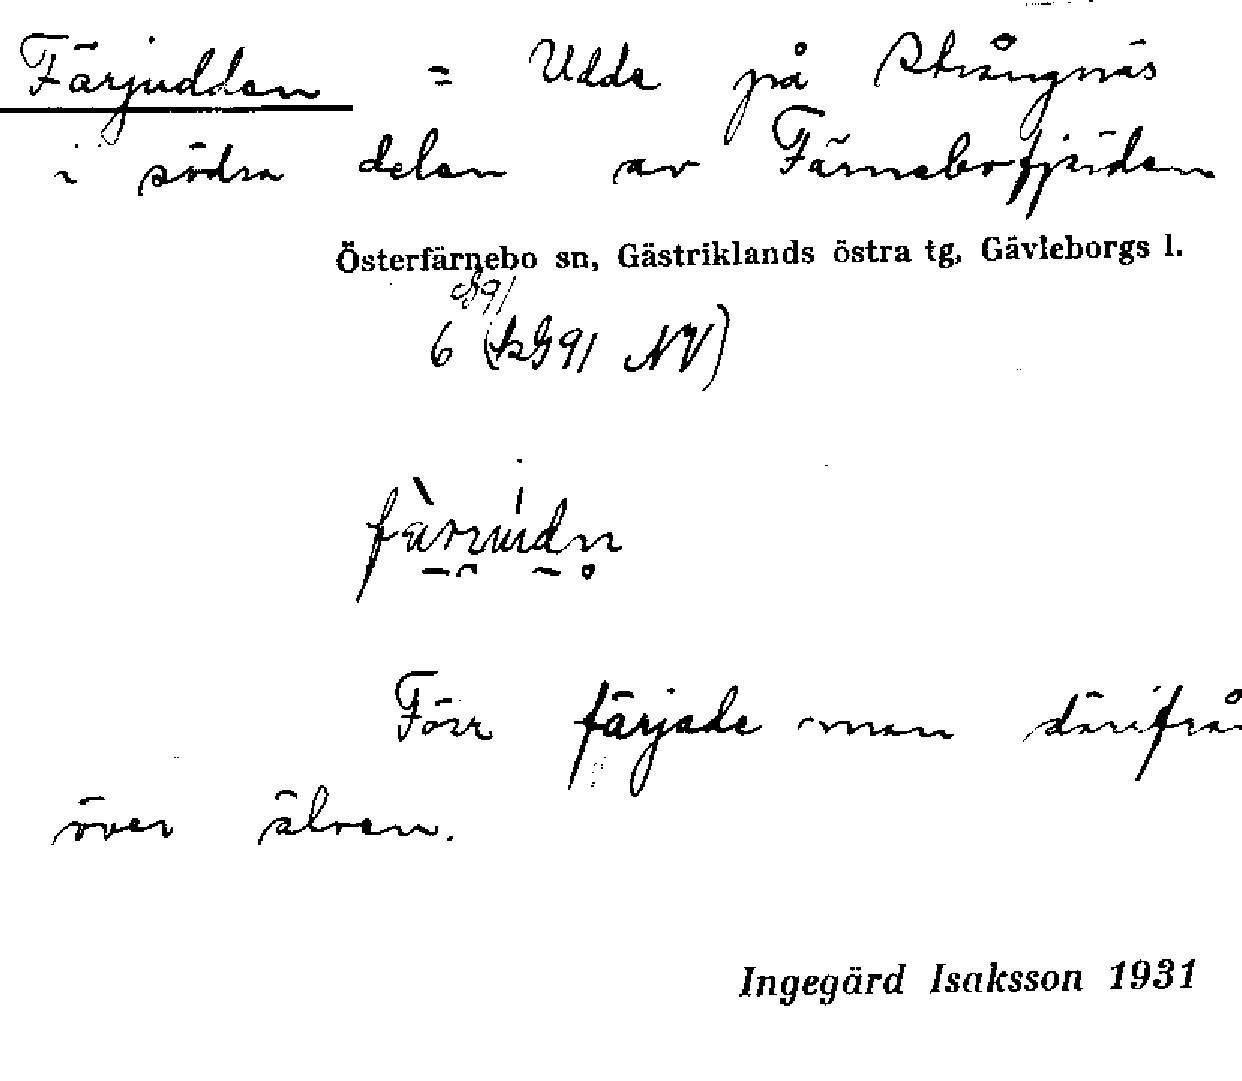 Färjudden = Udde på Strångnäs
i södra delen av Färnebofjärden
Österfärnebo sn, Gästriklands östra tg, Gävleborgs l.
91
6 91 NV)
Förr färjade man därifrå
över älven.
Ingegärd Isaksson 1931